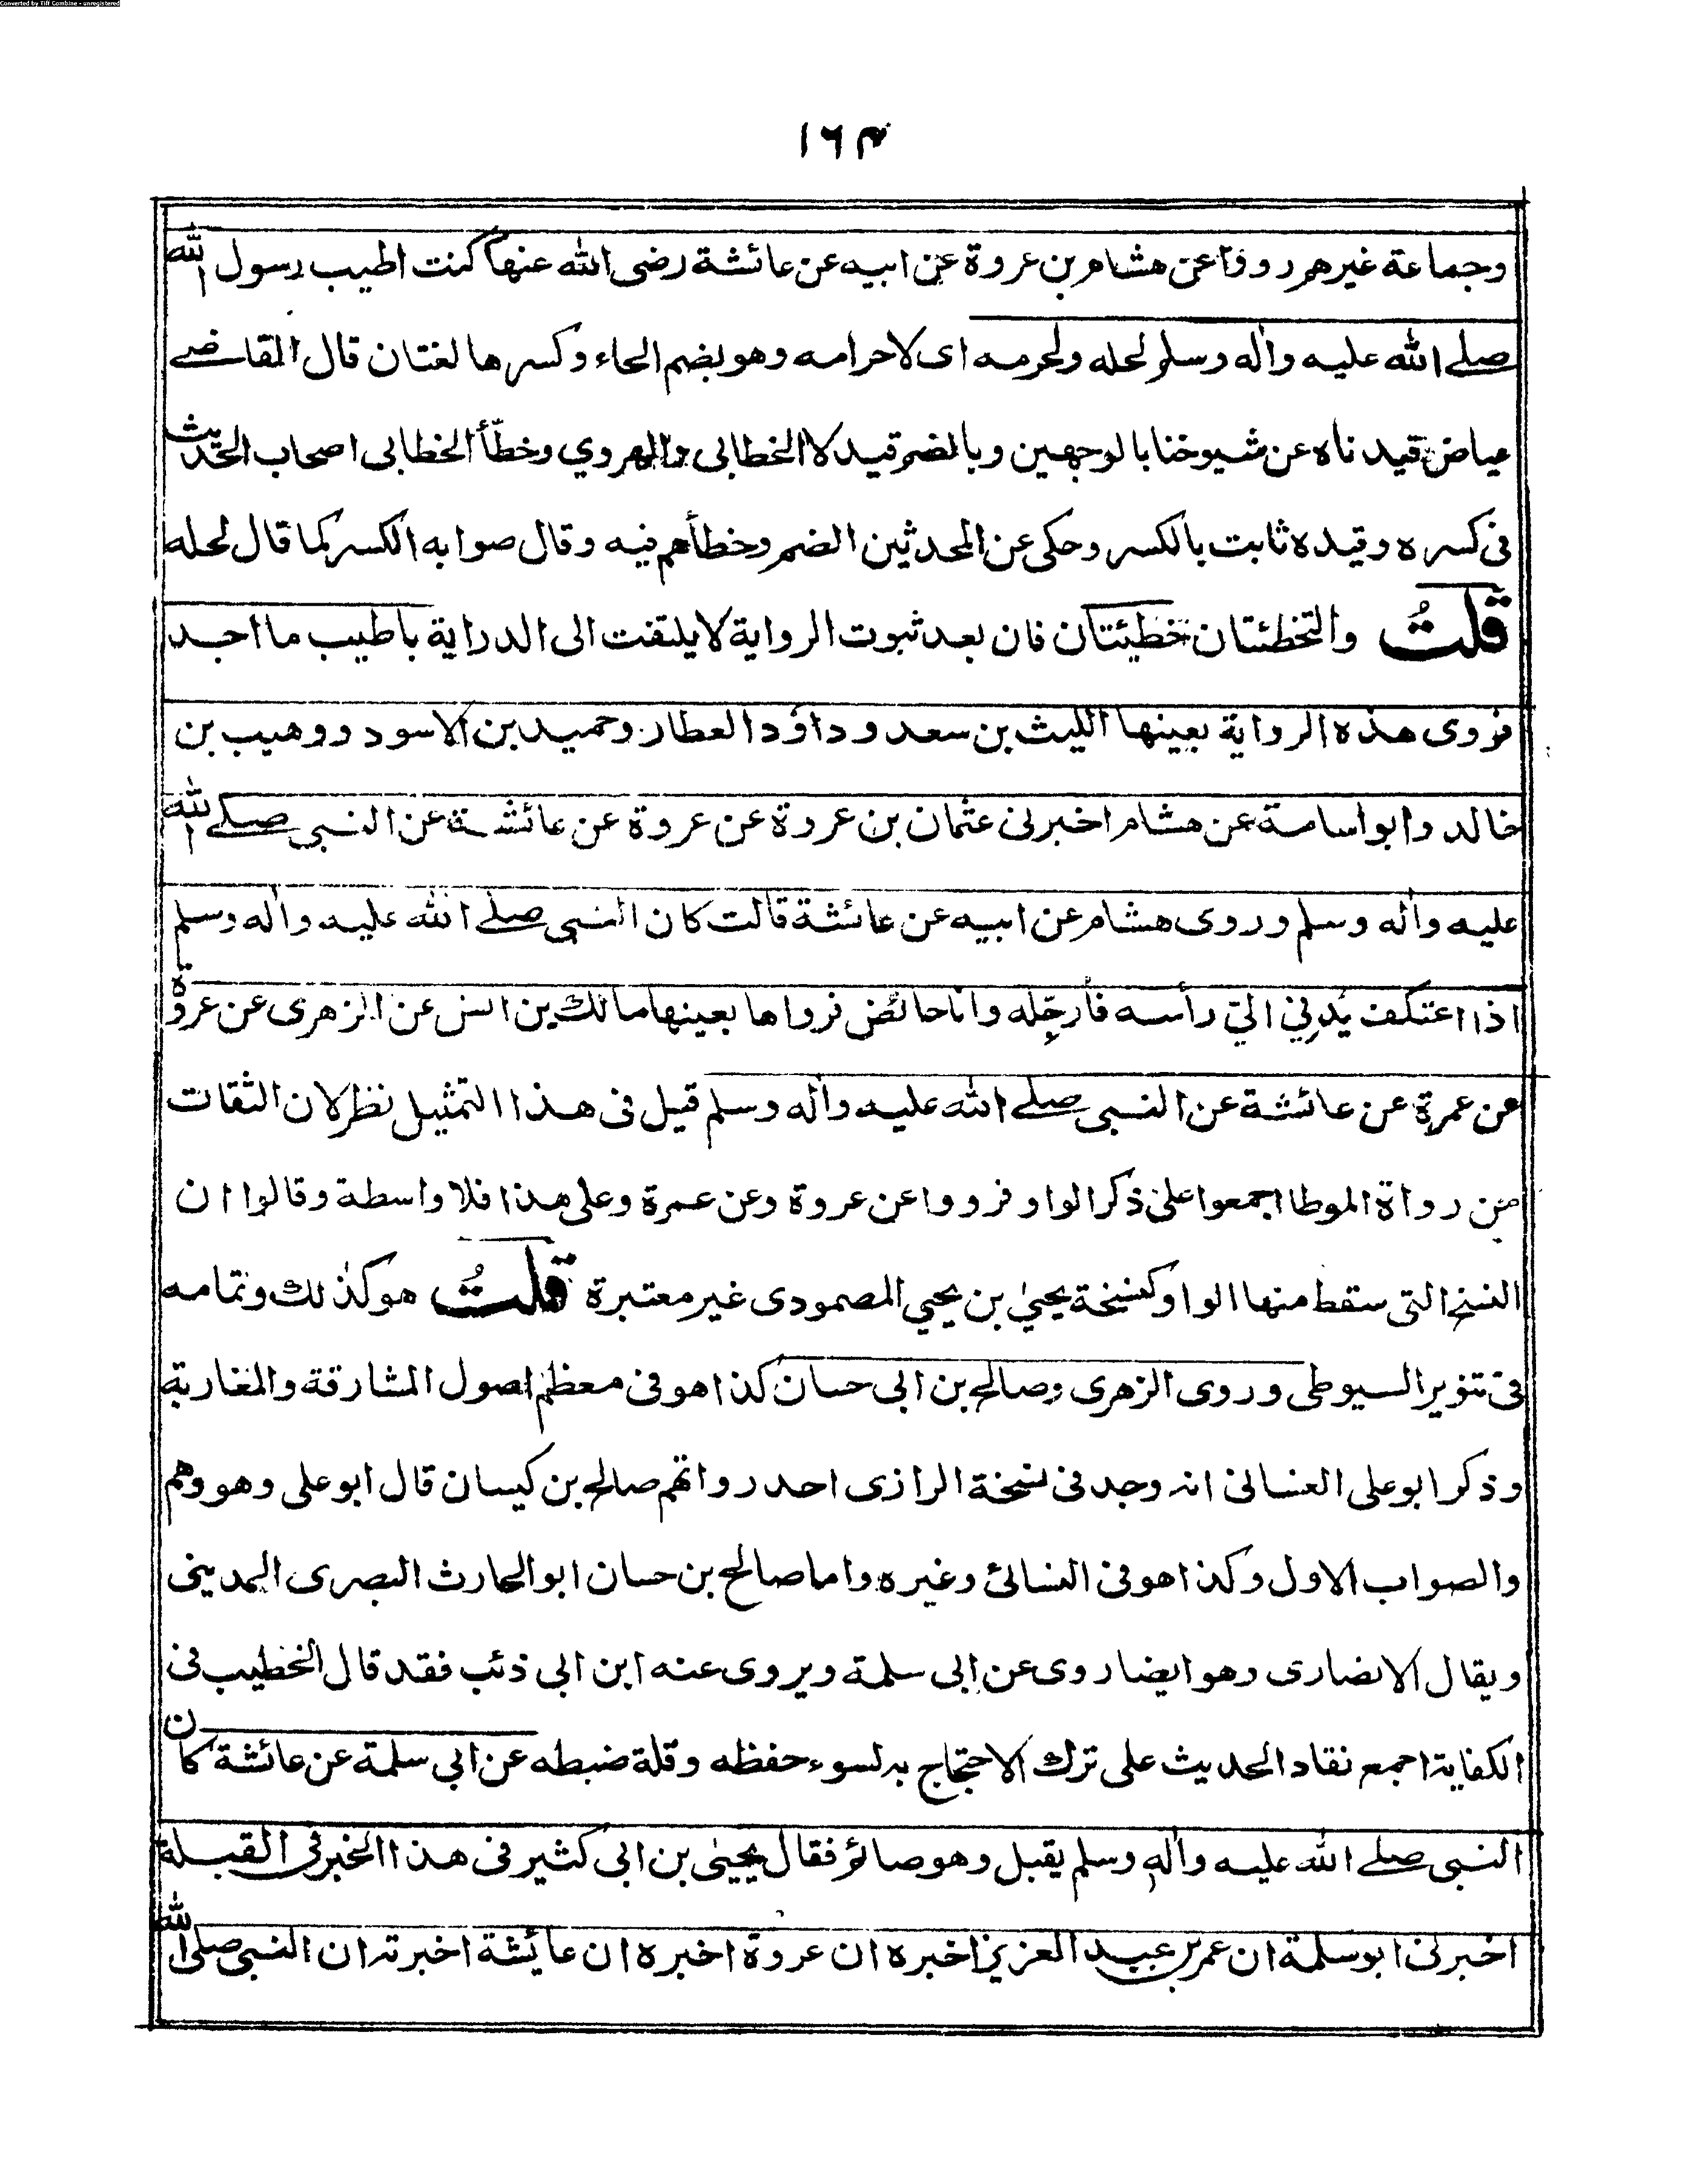 Converted by Tiff Combine - unregistered
١٦٤
وجماعة غيرهم رووا عن هشام بن عروة عن ابيه عن عائشة رضى الله عنها كنت اطيب رسول الله
صلى الله عليه واٰله وسلم لحله ولحرمه اى لاحرامه وهو بضم الحاء وكسرها لغتان قال القاضى
عياض قيدناه عن شيوخنا بالوجهين وبالضم قيده الخطابى والهروي وخطّأ الخطابى اصحاب الحديث
فى كسره وقيده ثابت بالكسر وحكى عن المحدثين الضم وخطأهم فيه وقال صوابه الكسر كما قال لحله
قلتُ والتخطئتان خطيئتان فان بعد ثبوت الرواية لا يلتفت الى الدراية باطيب ما اجد
فروى هذه الرواية بعينها الليث بن سعد وداؤد العطار وحميد بن الاسود ووهيب بن
خالد وابو اسامة عن هشام اخبرنى عثمان بن عروة عن عروة عن عائشة عن النبى صلے الله
عليه واٰله وسلم وروى هشام عن ابيه عن عائشة قالت كان النبى صلے الله عليه واٰله وسلم
اذا اعتكف يُدني اليّ رأسه فأرجّله وانا حائض فرواها بعينها مالك بن انس عن الزهرى عن عروة
عن عمرة عن عائشة عن النبى صلے الله عليه واٰله وسلم قيل فى هذا التمثيل نظر لان الثقات
من رواة الموطا اجمعوا على ذكر الواو فرووا عن عروة وعن عمرة وعلى هذا فلا واسطة وقالوا ان
النسخ التى سقط منها الواو كنسخة يحيىٰ بن يحيي المصمودى غير معتبرة قلتُ هو كذلك وتمامه
فى تنوير السيوطى وروى الزهرى وصالح بن ابى حسان كذا هو فى معظم اصول المشارقة والمغاربة
وذكر ابو على الغسانى انه وجد فى نسخة الرازى احد رواتهم صالح بن كيسان قال ابو على وهو وهم
والصواب الاول وكذا هو فى النسائى وغيره واما صالح بن حسان ابو الحارث البصرى المدينى
ويقال الانصارى وهو ايضا روى عن ابى سلمة ويروى عنه ابن ابى ذئب فقد قال الخطيب فى
الكفاية اجمع نقاد الحديث على ترك الاحتجاج به لسوء حفظه وقلة ضبطه عن ابي سلمة عن عائشة كان
النبى صلے الله عليه واٰله وسلم يقبل وهو صائم فقال يحيىٰ بن ابى كثير فى هذا الخبر فى القبلة
اخبرنى ابو سلمة ان عمر بن عبد العزيز اخبره ان عروة اخبره ان عائشة اخبرته ان النبى صلى الله